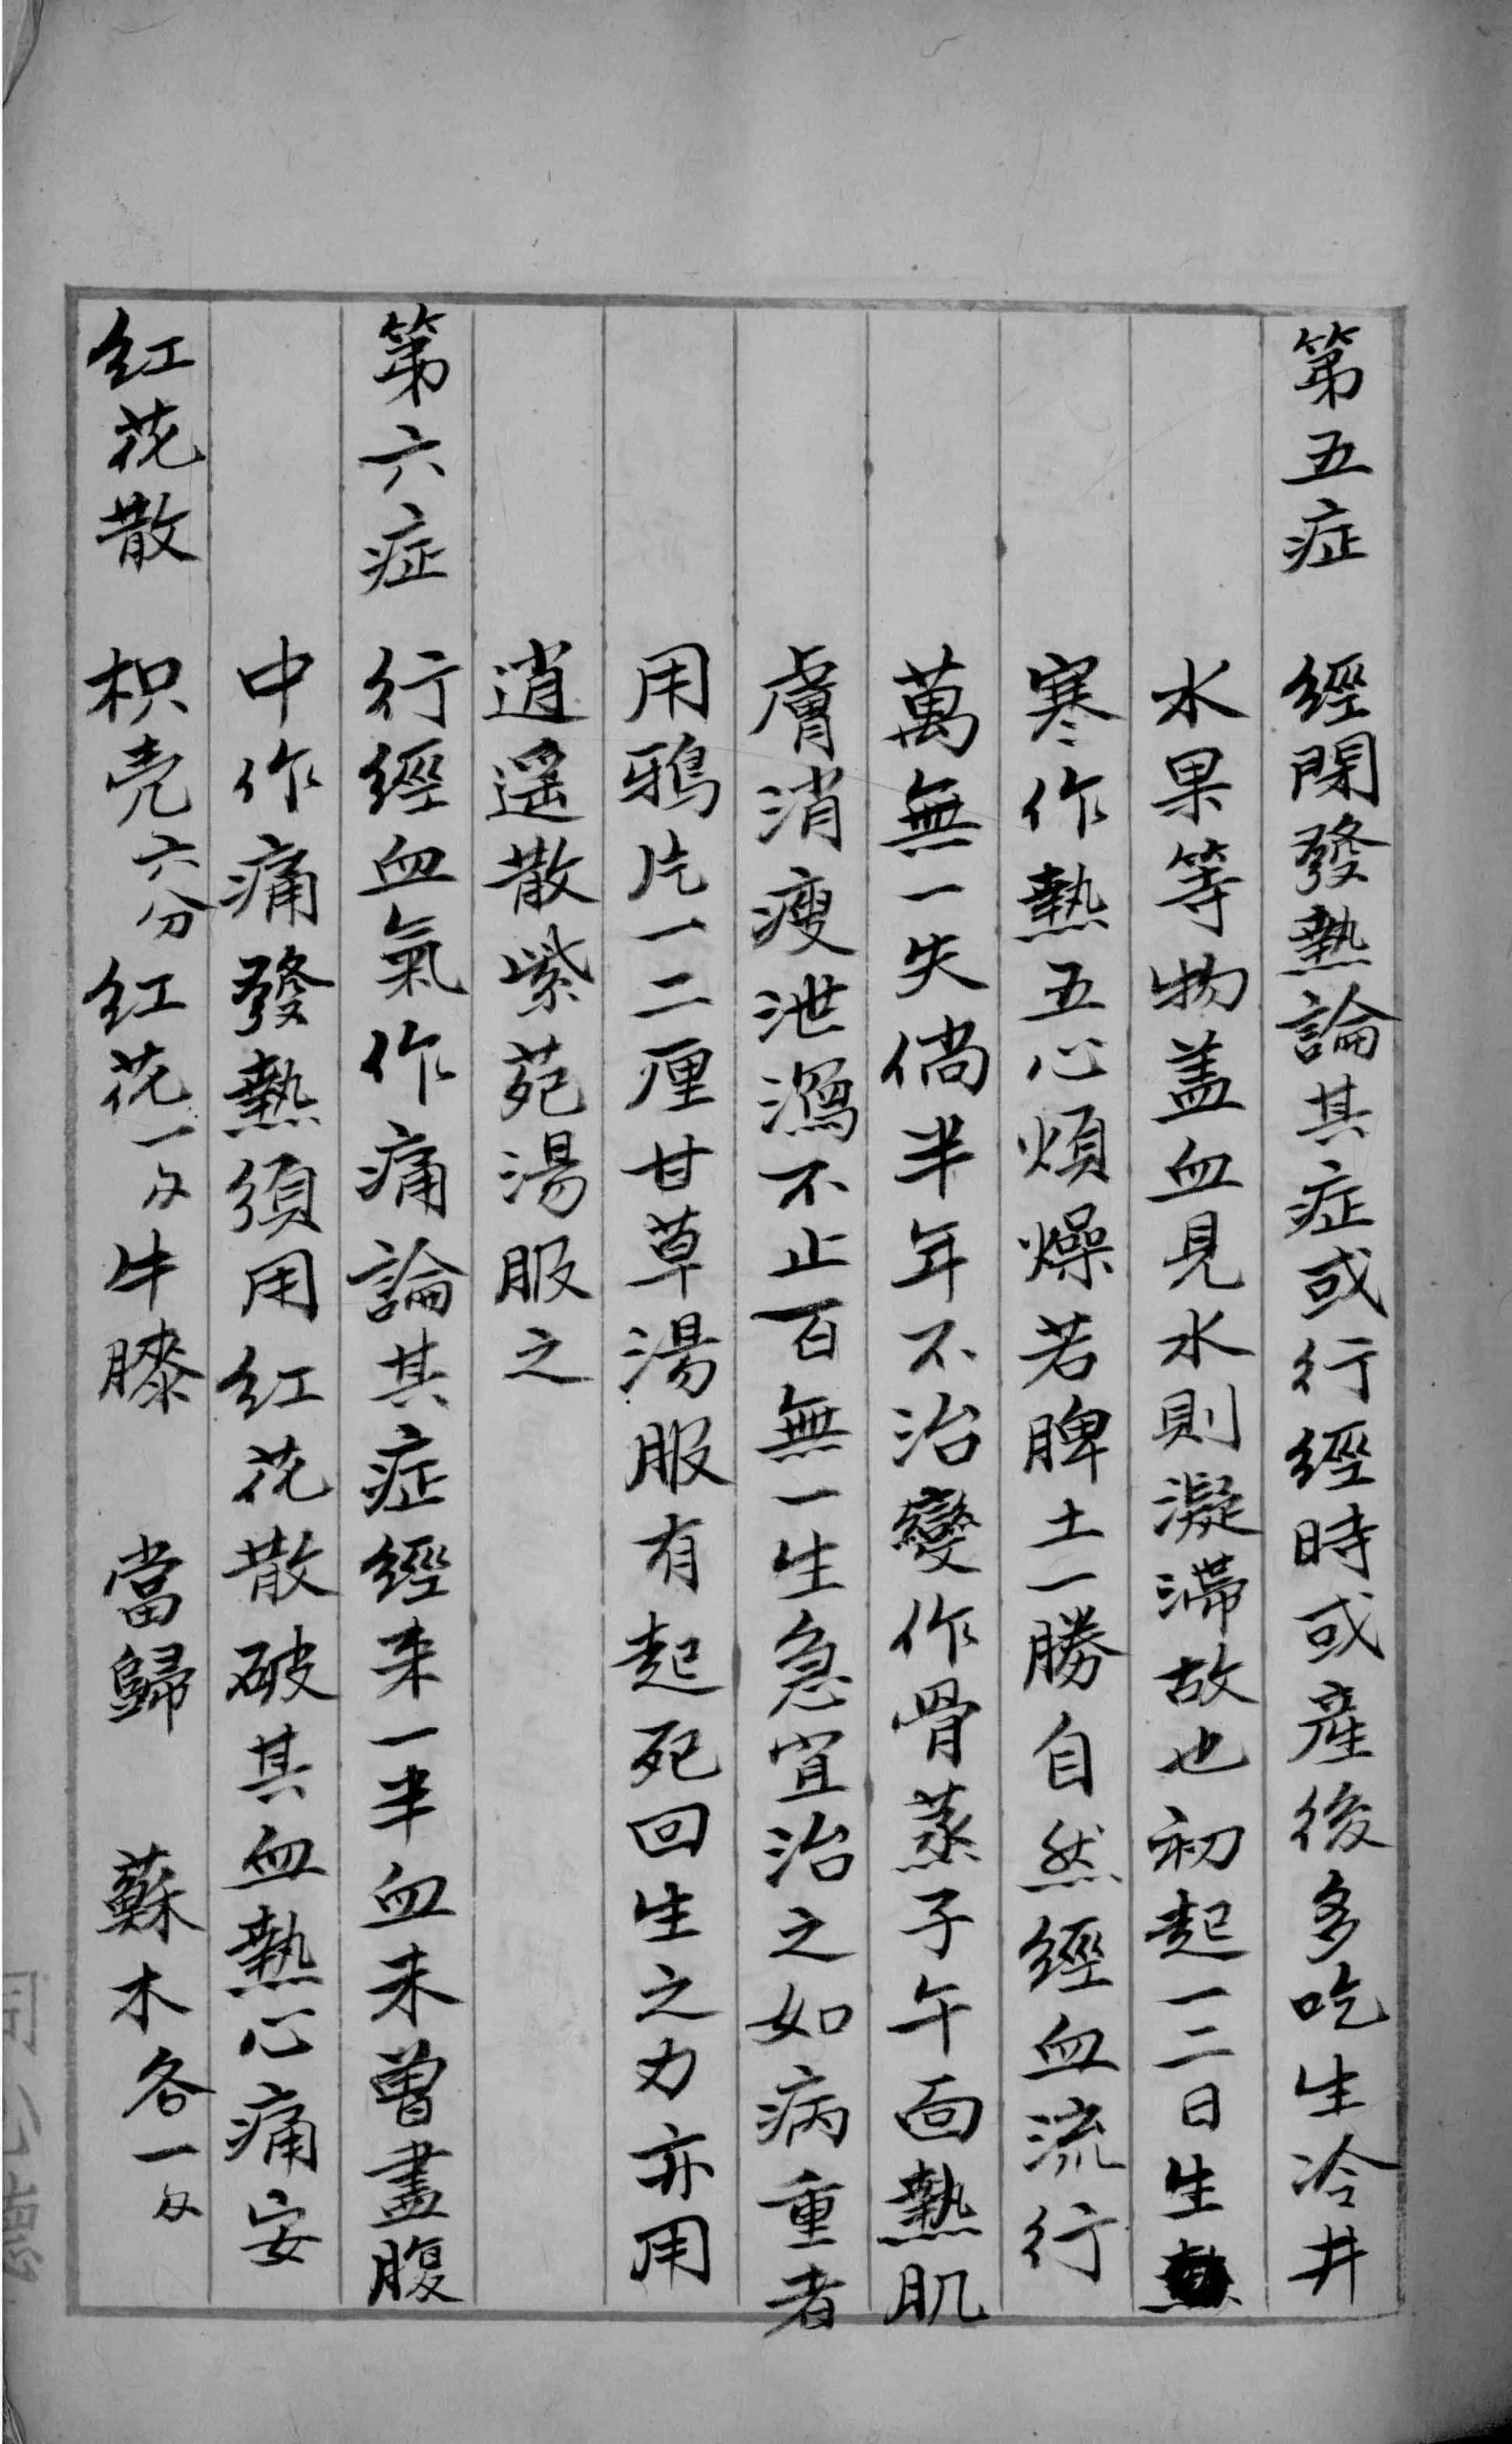 第五症　經閉發熱論其症或行經時或產後多吃生冷井
水果等物盖血見水則凝滯故也初起一二日生
寒作熱五心煩燥若脾土一勝自然經血流行
萬無一失倘半年不治變作骨蒸子午面熱肌
膚消瘦泄瀉不止百無一生急宜治之如病重者
用鴉片一二厘甘草湯服有起死回生之力亦用
逍遥散紫菀湯服之
第六症　行經血氣作痛論其症經来一半血未曾盡腹
中作痛發熱須用紅花散破其血熱心痛安
紅花散　枳壳六分紅花一攵牛膝　當歸　蘇木各一攵